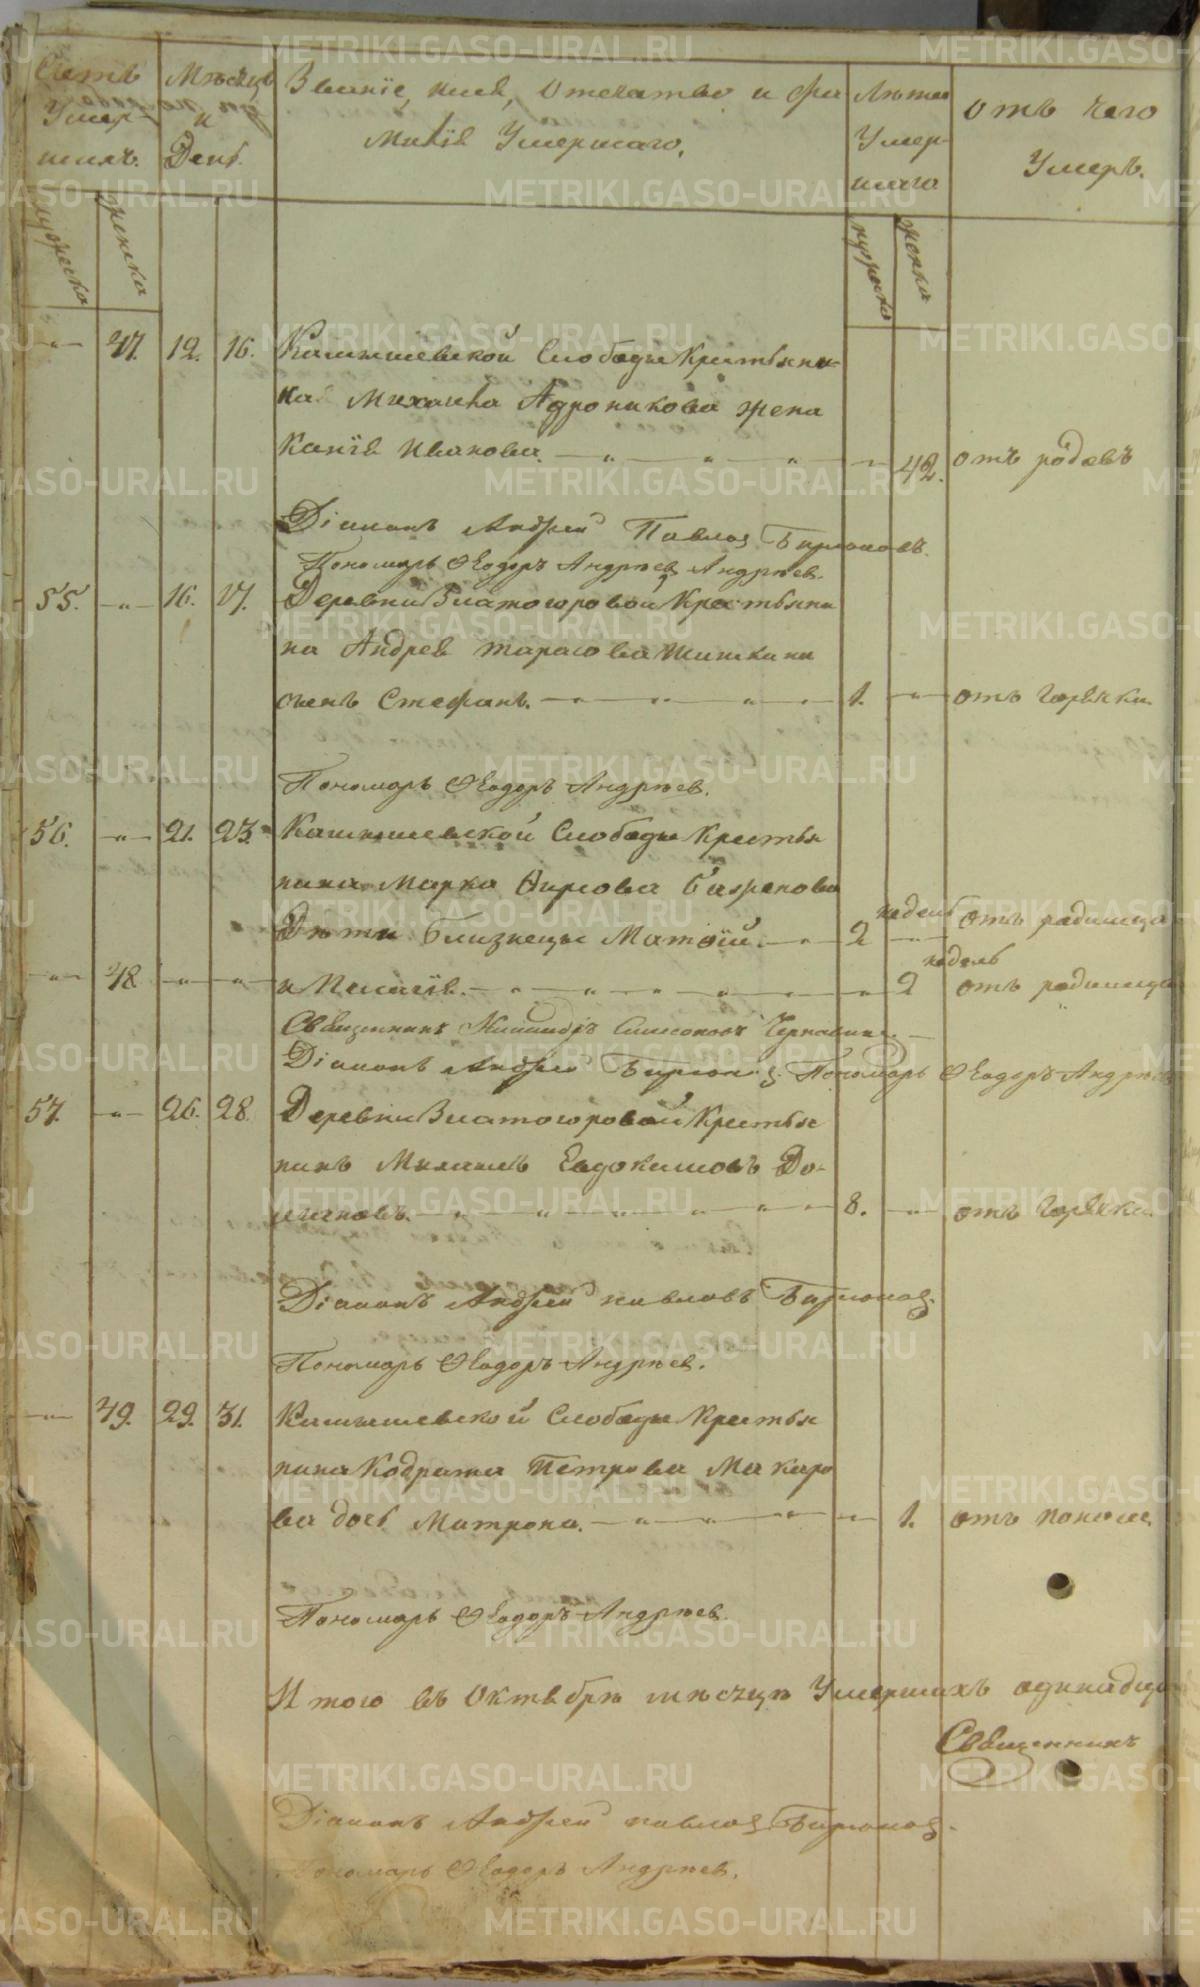 Счетъ Умер-шихъ.
Мѣсяцъ и День.
Званіе, имя, отечество и фа
милія Умершаго.
Лѣта Умер-шаго
отъ чего Умеръ.
мужеска
женска
мужеска
женска
47. 12. 16. Камышевской Слободы Крестьяни-
на Михаила Адроникова жена
Ксенія Иванова. 42. отъ родовъ
Діаконъ Андрей Павловъ Бирюковъ.
Пономарь Ѳеодоръ Андрѣевъ Андрѣев.
55. 16. 17. Деревни Златогоровой Крестьяни
на Андрея Тарасова Шишкина
сынъ Стефанъ. 1. отъ горячки.
Пономарь Ѳеодоръ Андрѣев.
56. 21. 23. Камышевской Слободы Крестья
нина Марка Фирсова Баженова
Дѣти близнецы Матѳій. 2 недель отъ родимца
48. и Пелагія. 2 недель отъ родимца
Священникъ Симеоновъ
Діаконъ Андрей Бирюков. Пономарь Ѳеодоръ Андрѣев
57. 26. 28. Деревни Златогоровой Крестья
нинъ Евдокимовъ До-
8. отъ горячки.
Діаконъ Андрей Павловъ Бирюков.
Пономарь Ѳеодоръ Андрѣев.
49. 29. 31. Камышевской Слободы Крестья
нина Кодрата Петрова Макаро
ва дочь Матрона. 1. отъ поноса.
Пономарь Ѳеодоръ Андрѣев.
Итого въ Октябрѣ мѣсяцѣ Умершихъ одинадца
Священникъ
Діаконъ Андрей Павлов Бирюков.
Пономарь Ѳеодоръ Андрѣев.
METRIKI.GASO-URAL.RU